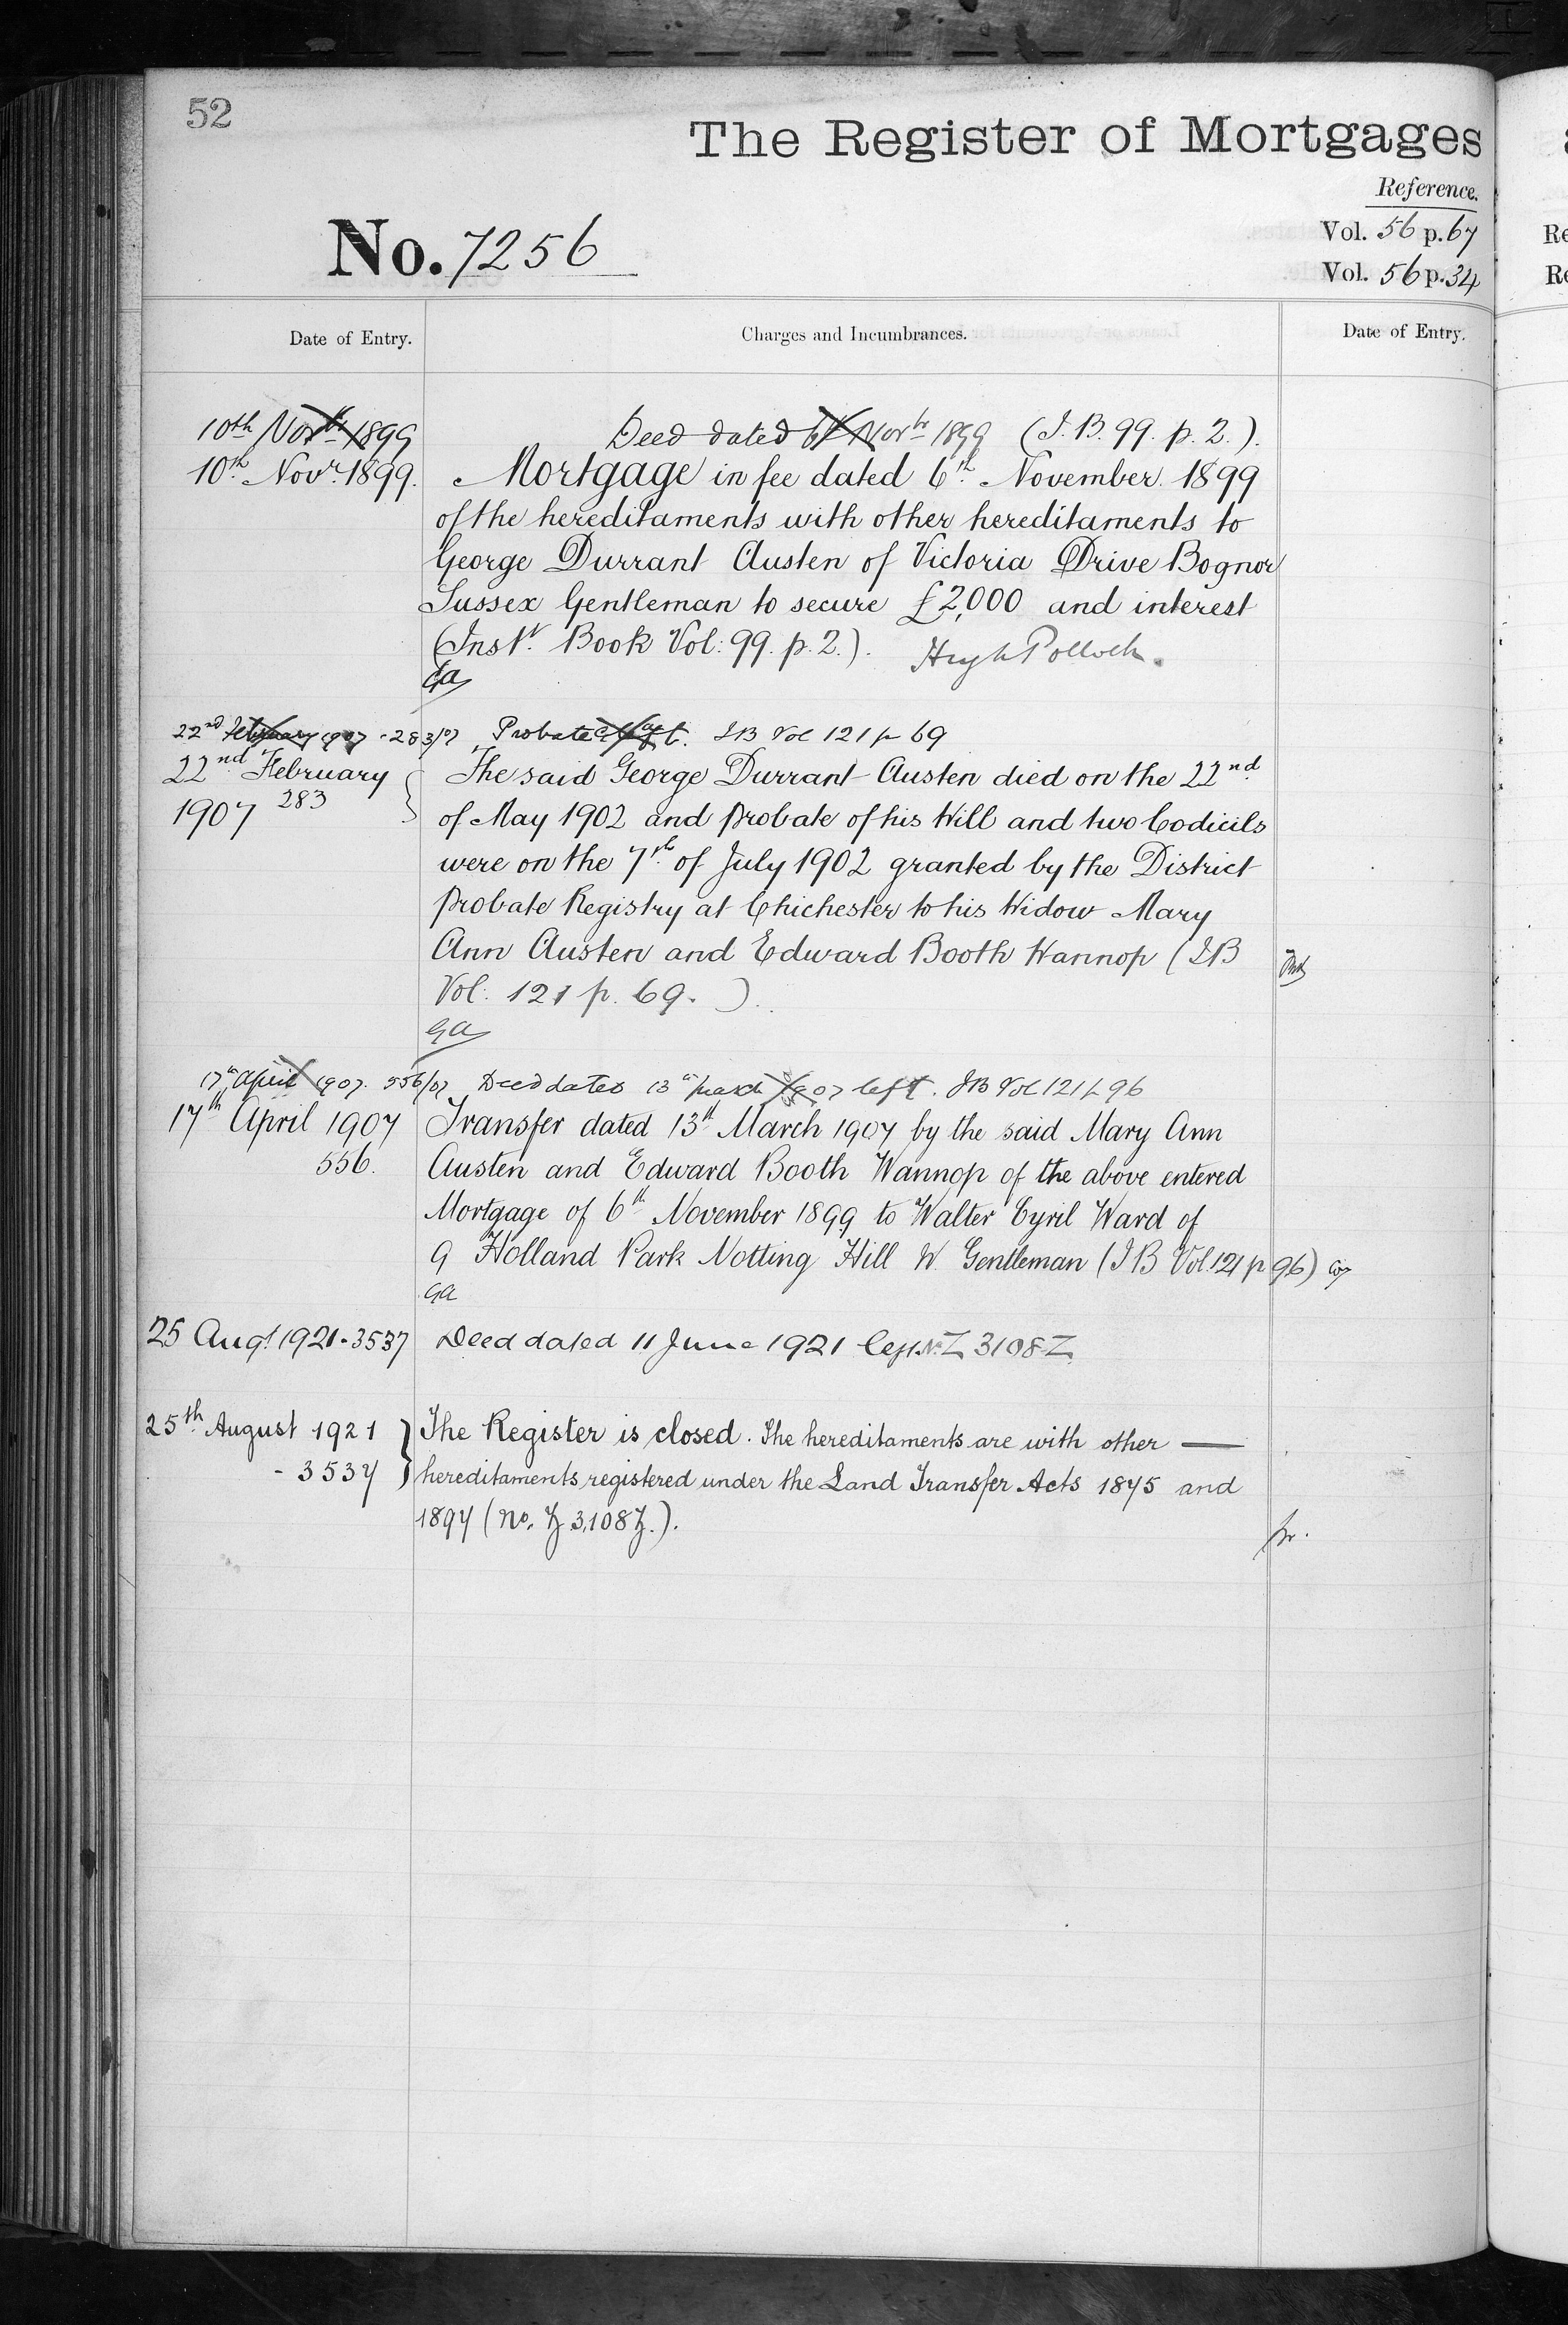 52
The Register of Mortgages
Reference.
No. 7256
Vol. 56 p. 67
Vol. 56 p. 34
Date of Entry.
Charges and Incumbrances.
Date of Entry.
10th Novbr 1899
Deed dated 6th Novbr 1899 (I.B. 99. p. 2.).
10th Novr 1899.
Mortgage in fee dated 6th November 1899
of the hereditaments with other hereditaments to
George Durrant Austen of Victoria Drive Bognor
Sussex Gentleman to secure £2,000 and interest
(Inst. Book Vol: 99. p. 2.). Hugh Pollock.
GA
22nd February 1907 - 283/07 Probate left. IB Vol 121 p 69
22nd February
1907 283
The said George Durrant Austen died on the 22nd
of May 1902 and Probate of his Will and two Codicils
were on the 7th of July 1902 granted by the District
Probate Registry at Chichester to his Widow Mary
Ann Austen and Edward Booth Wannop (IB
Vol: 121 p. 69.)
GA
17th April 1907. 556/07 Deed dated 13th March 1907 left. IB Vol 121 p 96
17th April 1907
556.
Transfer dated 13th March 1907 by the said Mary Ann
Austen and Edward Booth Wannop of the above entered
Mortgage of 6th November 1899 to Walter Cyril Ward of
9 Holland Park Notting Hill W. Gentleman (IB Vol. 121 p 96)
GA
25 Augt 1921 - 3537 Deed dated 11 June 1921 No Z 3108 Z
25th August 1921
- 3537
The Register is closed. The hereditaments are with other —
hereditaments registered under the Land Transfer Acts 1875 and
1897 (No. Z 3,108 Z.).